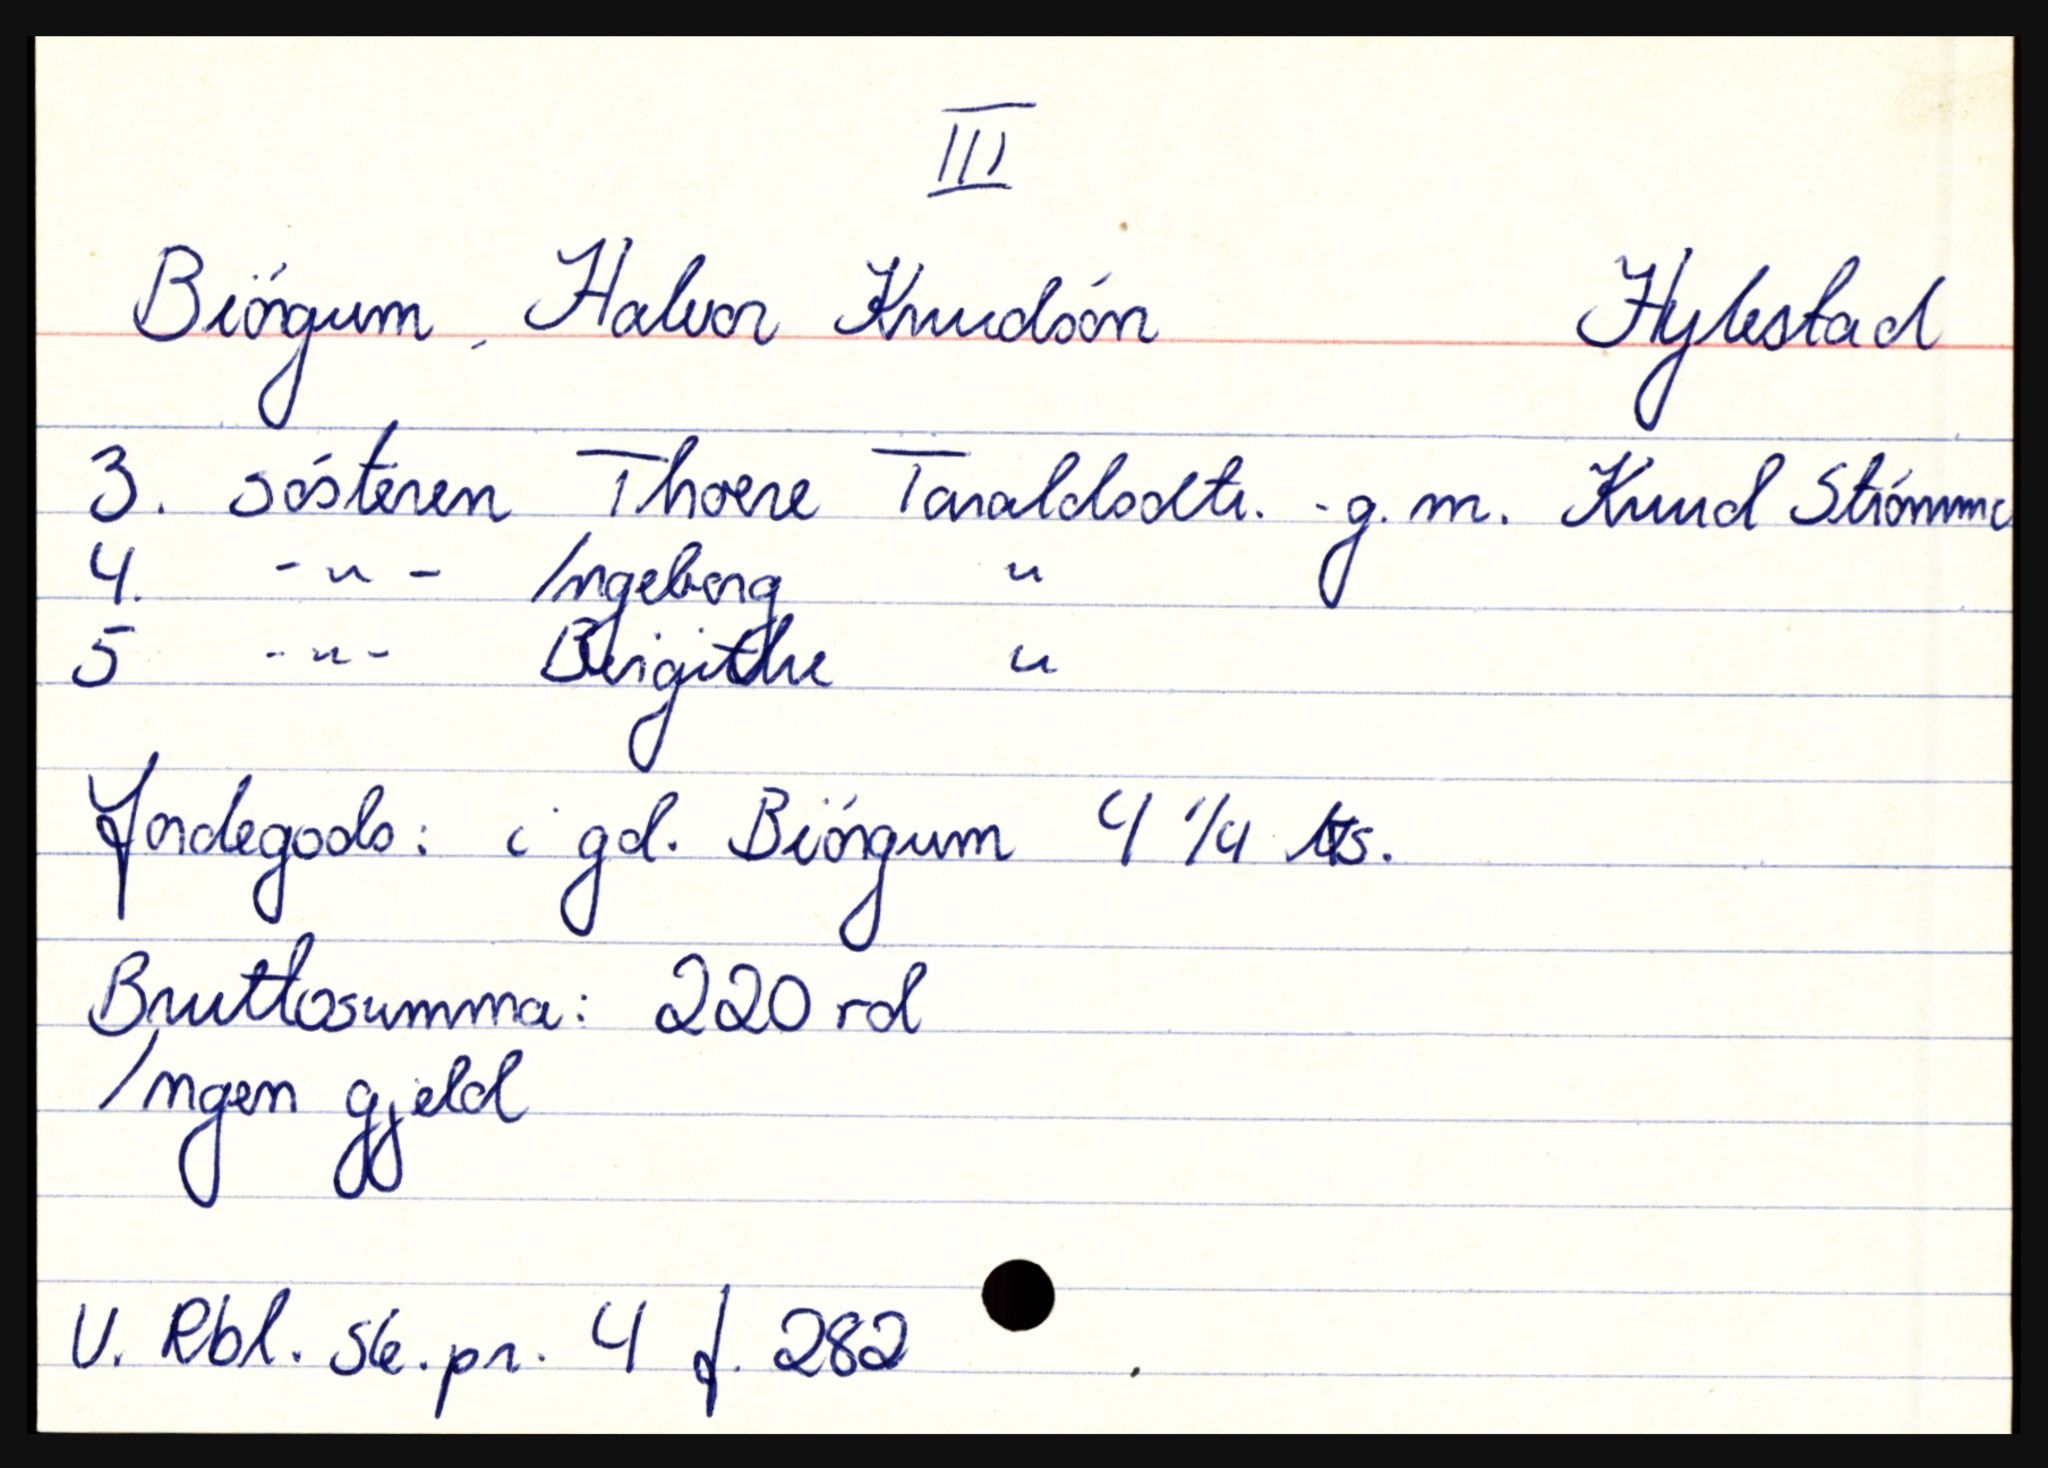 III
Biórgum, Halvor Knudsón Hylestad
3. sósteren Thoere Taraldsdtr. - g. m. Knud Strömme
4. -"- Ingeborg "
5 -"- Birgithe "
Jordegods: i gd. Biórgum 4 1/4 ks.
Bruttosumma: 220 rd
Ingen gjeld
V. Rbl. sk. pr. 4 f. 282